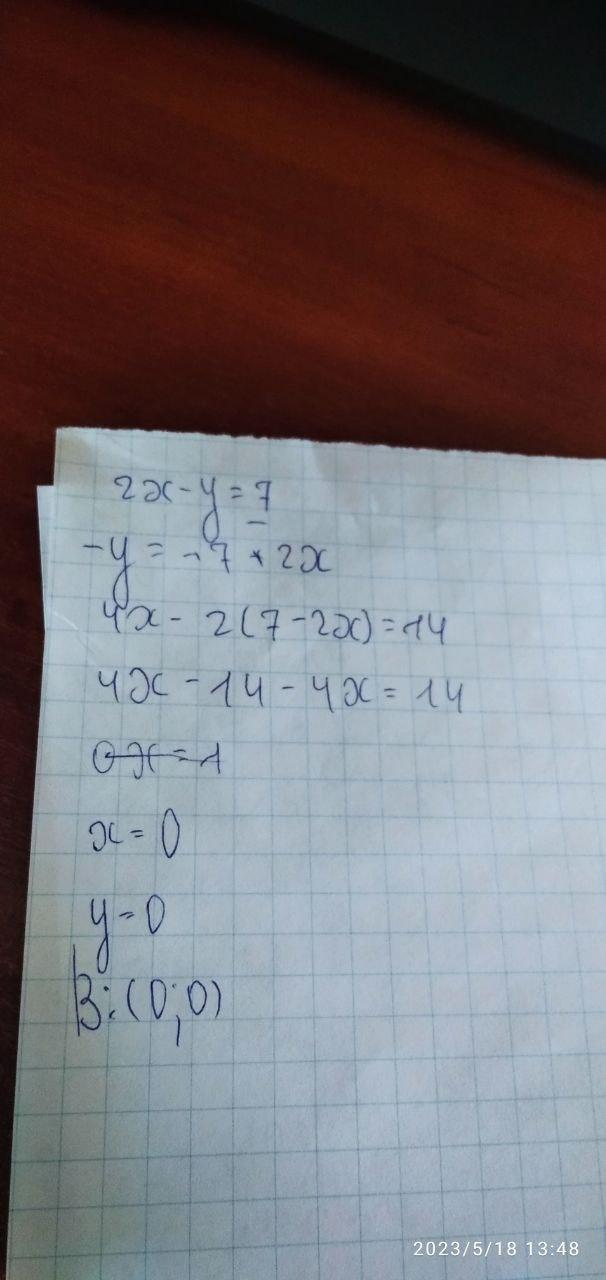 2x - y = 7
-y = -7 + 2x
4x - 2(7 - 2x) = 14
4x - 14 - 4x = 14
0x = 1
x = 0
y = 0
В: (0; 0)
2023/5/18 13:48